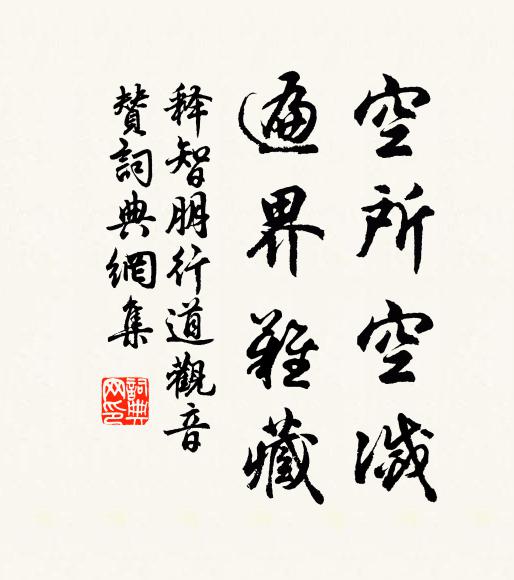 空所空滅
遍界難藏
释智朋行道觀音
贊詞典網集
詞典网印